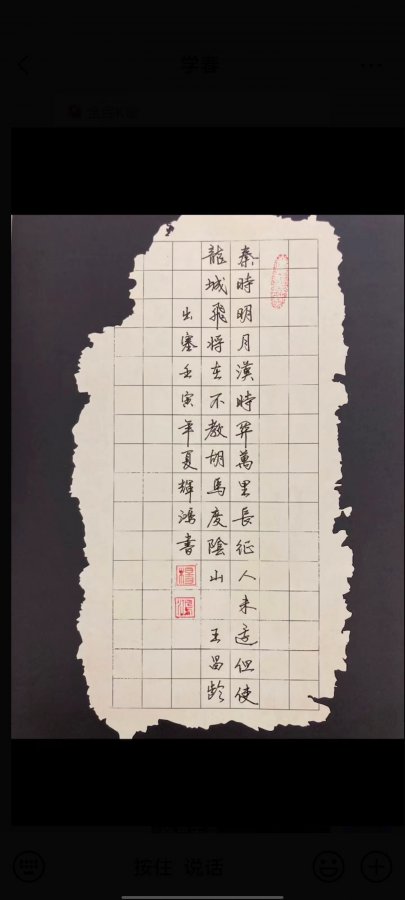 学春
秦時明月漢時関萬里長征人未還但使
龍城飛将在不教胡馬度陰山 王昌齡
出塞壬寅年夏輝鴻書
按住 说话